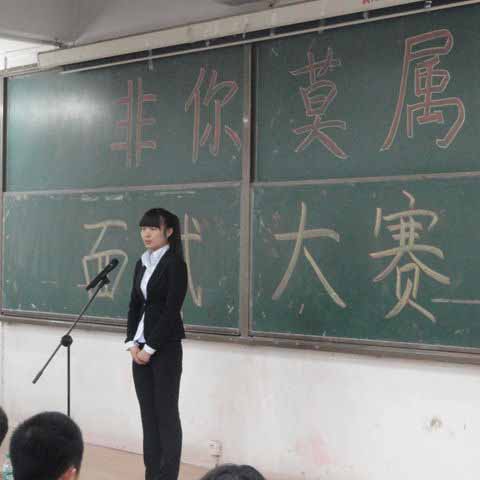 非你莫属
面试大赛